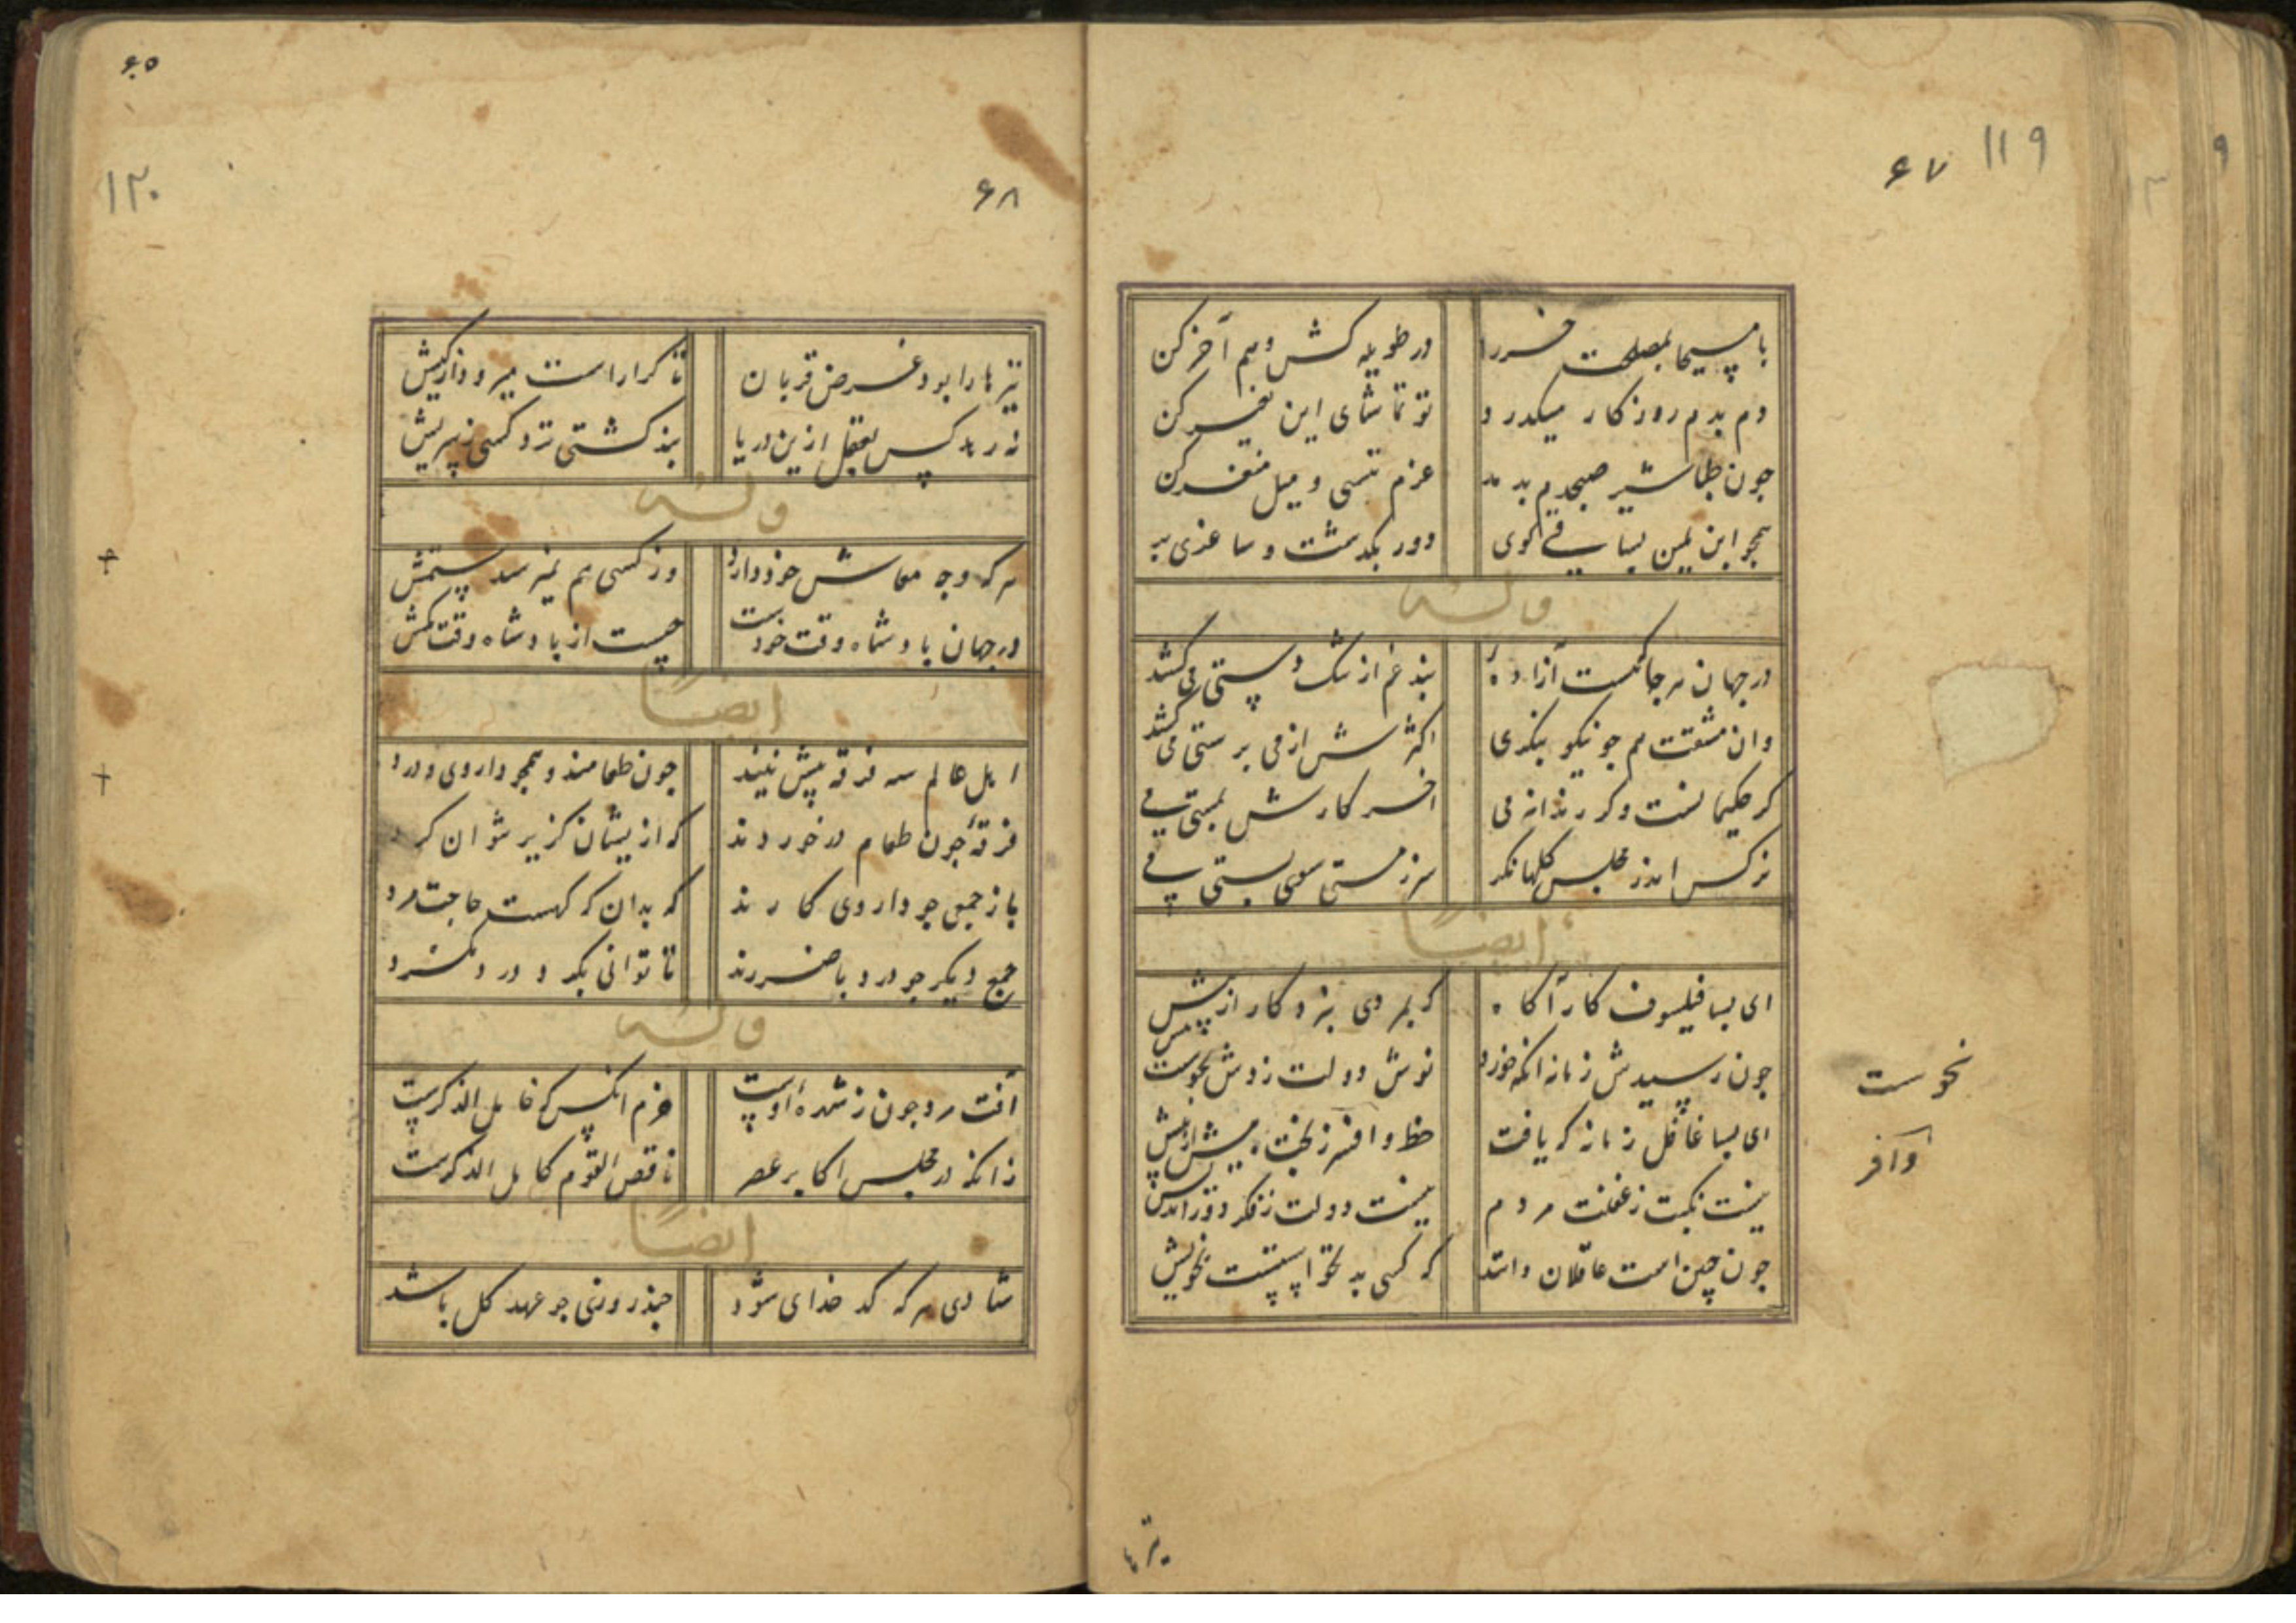 ۱۱۹
۶۷
با مسیحا بمصلحت خر را در طویله کش و هم آخر کن
دم بدم روزکار میکدرد تو تماشای این تغیر کن
چون طباشیر صبحدم بدمد عزم تنسی و میل
همجو ابن یمین بیا
وله
در جهان هر جا که هست آزاده بند غم از تنک دستی می کشد
وان مشقت هم جو نیکو بنکری اکثرش از می برستی می کشد
کر حکیمانست وکر رندانه می اخر کارش بمستی می کشد
نرکس اندر مجلس کلها نکر سر ز مستی سوی بستی می کشد
ایضاً
ای بسا فیلسوف کار آکاه که بمردی نبرد کار از پیش
چون رسیدش زمانه انکه خورد نوش دولت زدش نحوست نیش
نحوست
ای بسا غافل زمانه که یافت حظ وافر ز بخت بیش از پیش
وافر
نیست نکبت ز غفلت مردم نیست دولت ز فکر دور اندیش
چون چنین است عاقلان دانند که کسی بد نخواستست بخویش
تیرها
۶۵
۱۲۰
۶۸
تیرها را بود غرض قربان تا کرا راست میرود از کیش
نه رهد کس بعقل ازین دریا نبذ کشتی نزد کسی
وله
هر که وجه معاش خود دارد وز کسی هم نمیرسد ستمش
در جهان بادشاه وقت خودست چیست از بادشاه وقت کمش
ایضاً
اهل عالم سه فرقه بیش نیند چون طعامند و همجو داروی و درد
فرقه چون طعام در خوردند که ازیشان کزیر نتوان کرد
باز جمعی جو داروی کارند که بدان که کهست حاجت مرد
جمع دیکر جو درد با ضررند تا توانی بکرد درد مکرد
وله
آفت مرد چون ز شهره اوست خرم انکس که خامل الذکرست
زانکه در مجلس اکابر عصر ناقص القوم کامل الذکرست
ایضاً
شادی هر که کدخدای شود چند روزی جو عهد کل باشد